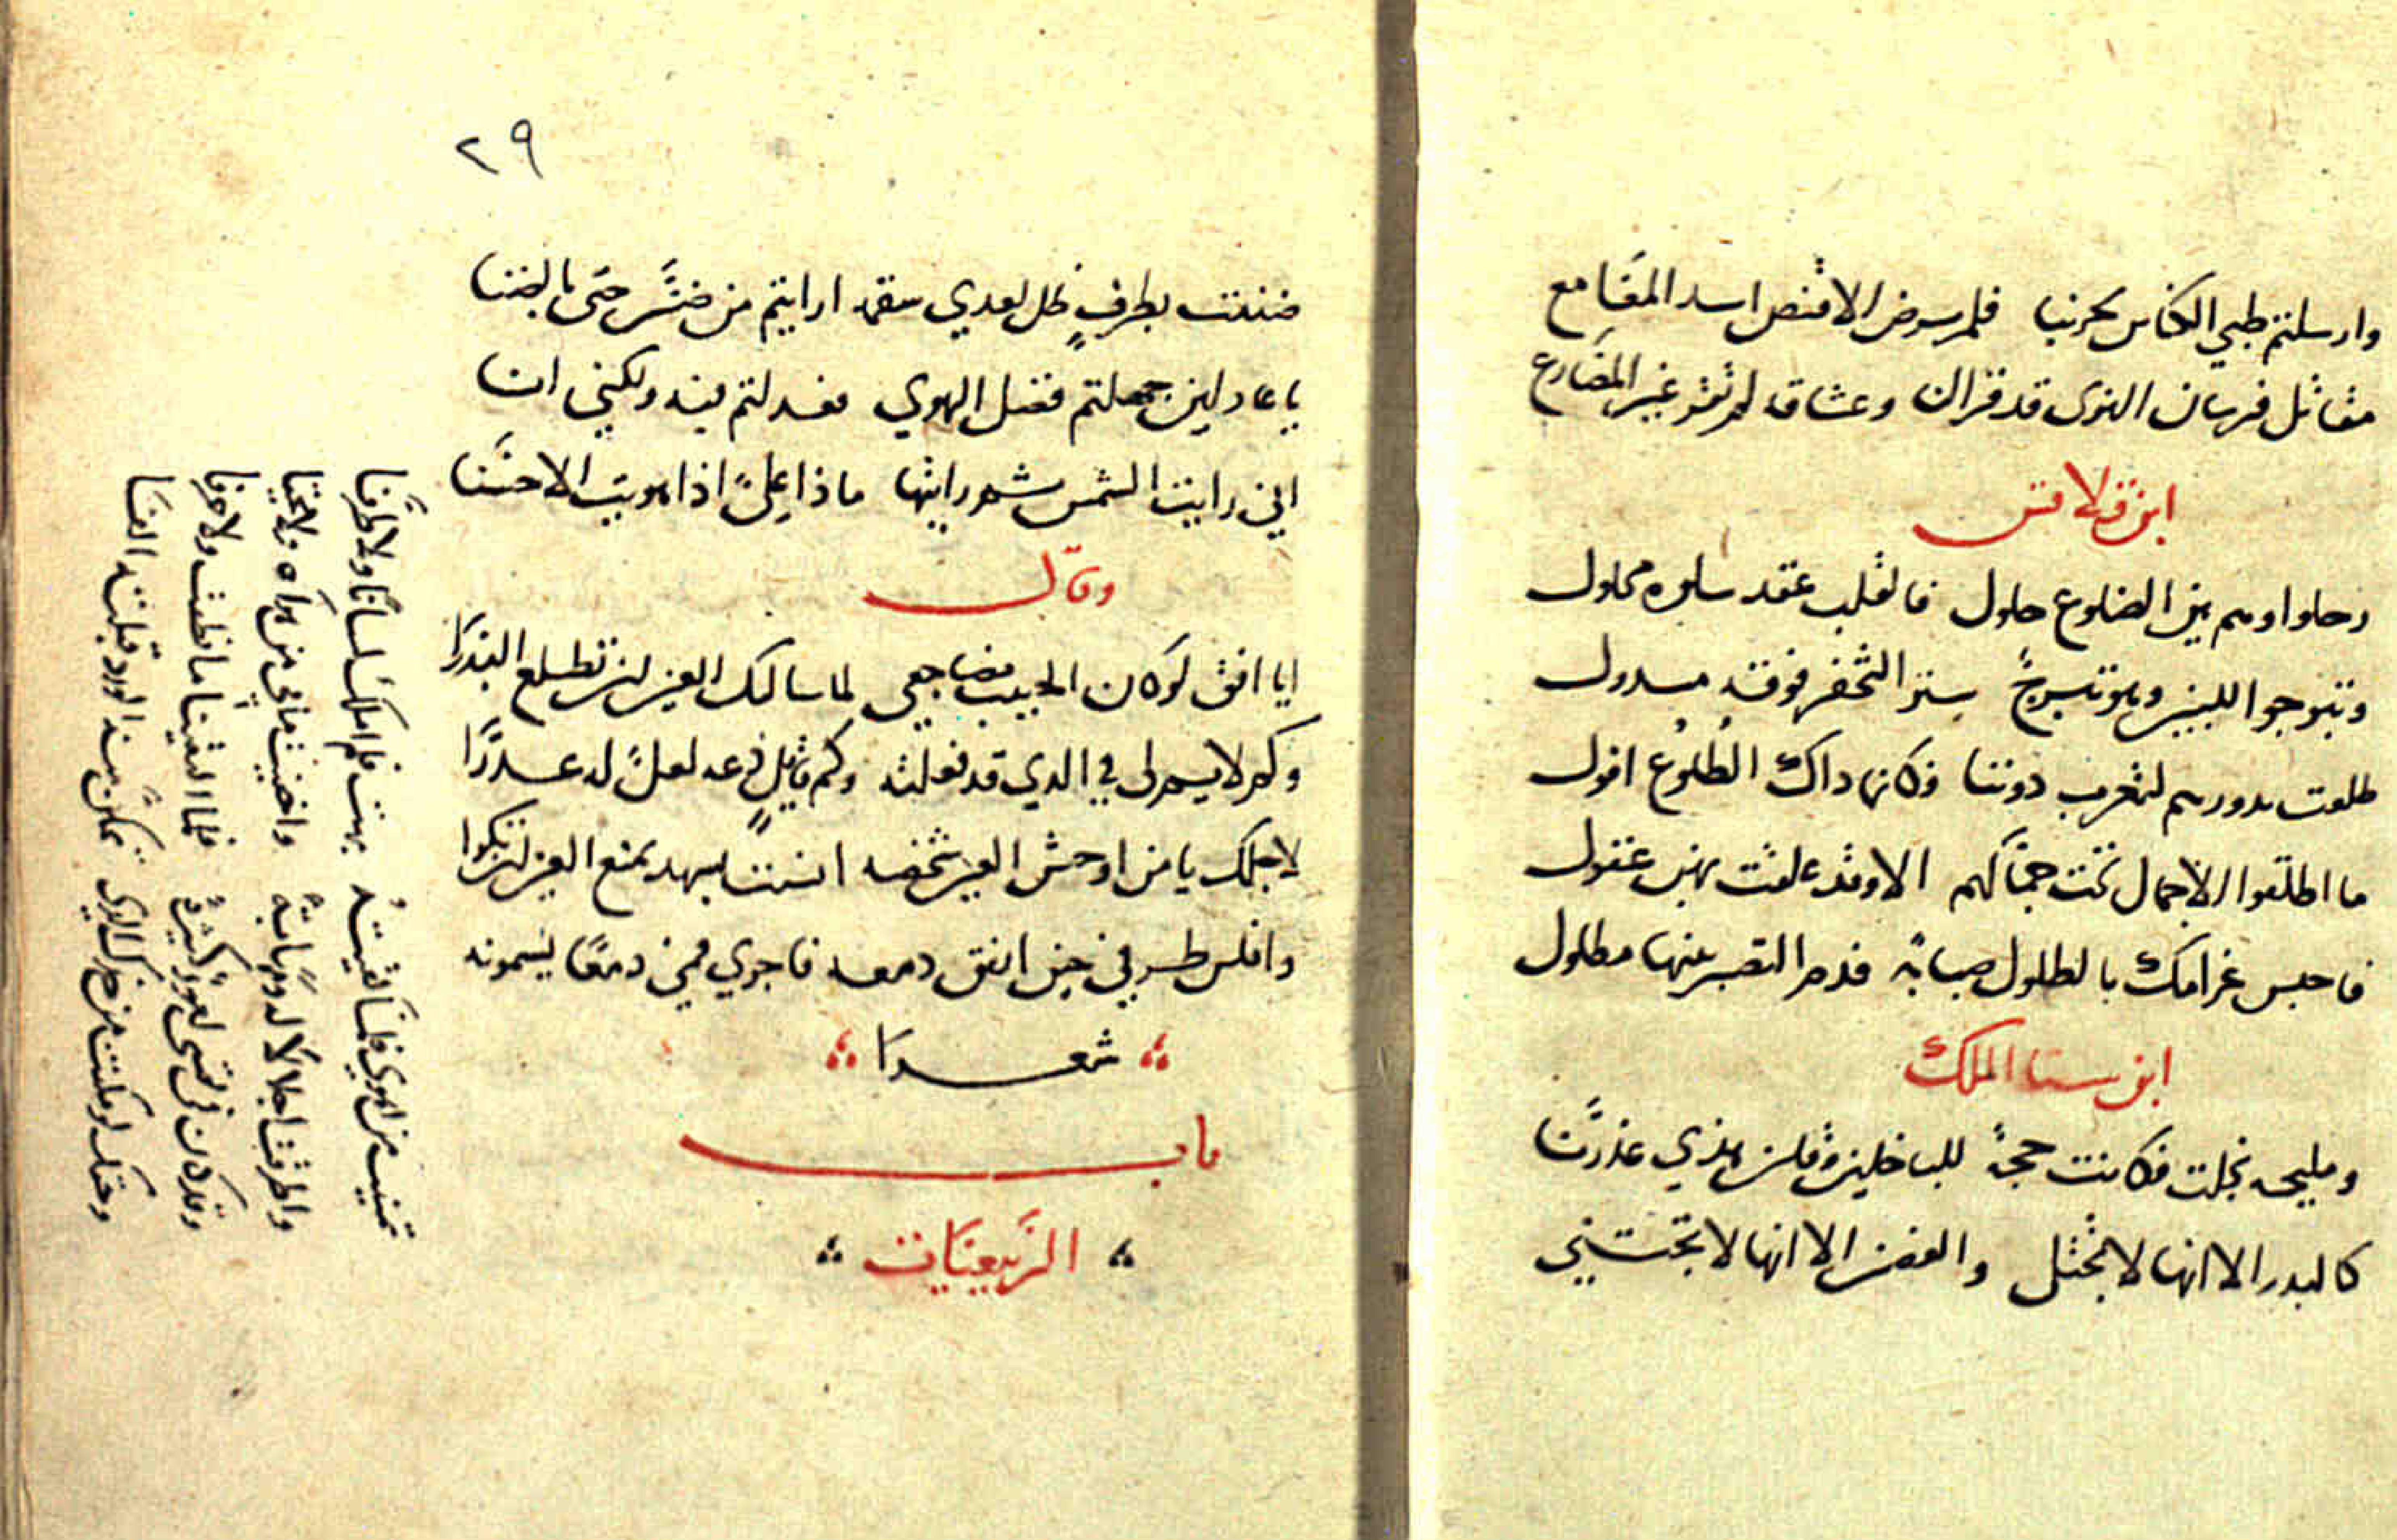 وارسلتم ظبي الكناس بحربنا فلم يرض الا قنص اسد المقامع
مقاتل فرسان الهوى قد قران وعشاقه لم تقر غير المصارع
ابن قلاقس
رحلوا وهم بين الضلوع حلول فالقلب عقد سلوه محلول
وتبوجوا للبين وهو تبرج ستر التخفر فوقه مسدول
طلعت بدورهم لتغرب دوننا فكانما داك الطلوع افول
ما اطلقوا الاجمال تحت جمالهم الا وقد علقت بهن عقول
فاحبس غرامك بالطلول صبابة فدم التصبر عنها مطلول
ابن سنا الملك
ومليحه بخلت فكانت حجة للباخلين وقلن هذي عذرنا
كالبدر الا انها لا تجتلى والغصن الا انها لا تجتني
٢٩
ضننت بطرف ظل بعدي سقمه ارايتم من ضن حتى بالضنا
يا عادلين جهلتم فضل الهوي فعدلتم فيه ولكني انا
اني رايت الشمس ثم رايتها ماذا علي اذا هويت الاحسنا
وقال
ايا افق لو كان الحبيب مضاجعي لما سالك العين لن تطلع البدرا
وكم لايم لي في الدي قد فعلته وكم قايل دعه لعل له عدرا
لاجلك يا من اوحش العين شخصه انست بسهد يمنع العين لن تكرا
وافلس طرفي حين انفق دمعه فاجري فمي دمعا يسمونه
شعرا
باب
الربيعيات
تمنيت من اهوي فلما لقيته بهت فلم املك لسانا ولا طرفا
واطرقت اجلالا له ومهابة واخفيت ما بي من هواه ولا يخفا
وقد كان في قلبي لعوز كثيرة فلما التقينا ما نطقت ولا حرفا
وحقك لو مكنت من خدك الدي تمكن منه الورد قبلته الفا